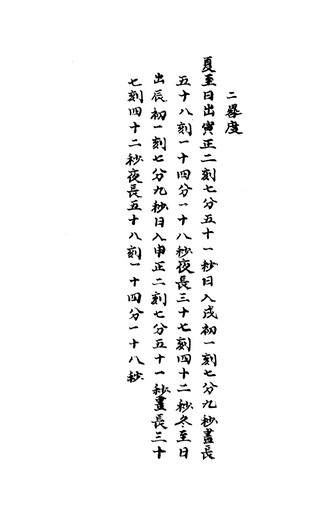 二晷度
夏至日出寅正二刻七分五十一秒日入戌初一刻七分九秒晝長
五十八刻一十四分一十八秒夜長三十七刻四十二秒冬至日
出辰初一刻七分九秒日入申正二刻七分五十一秒晝長三十
七刻四十二秒夜長五十八刻一十四分一十八秒